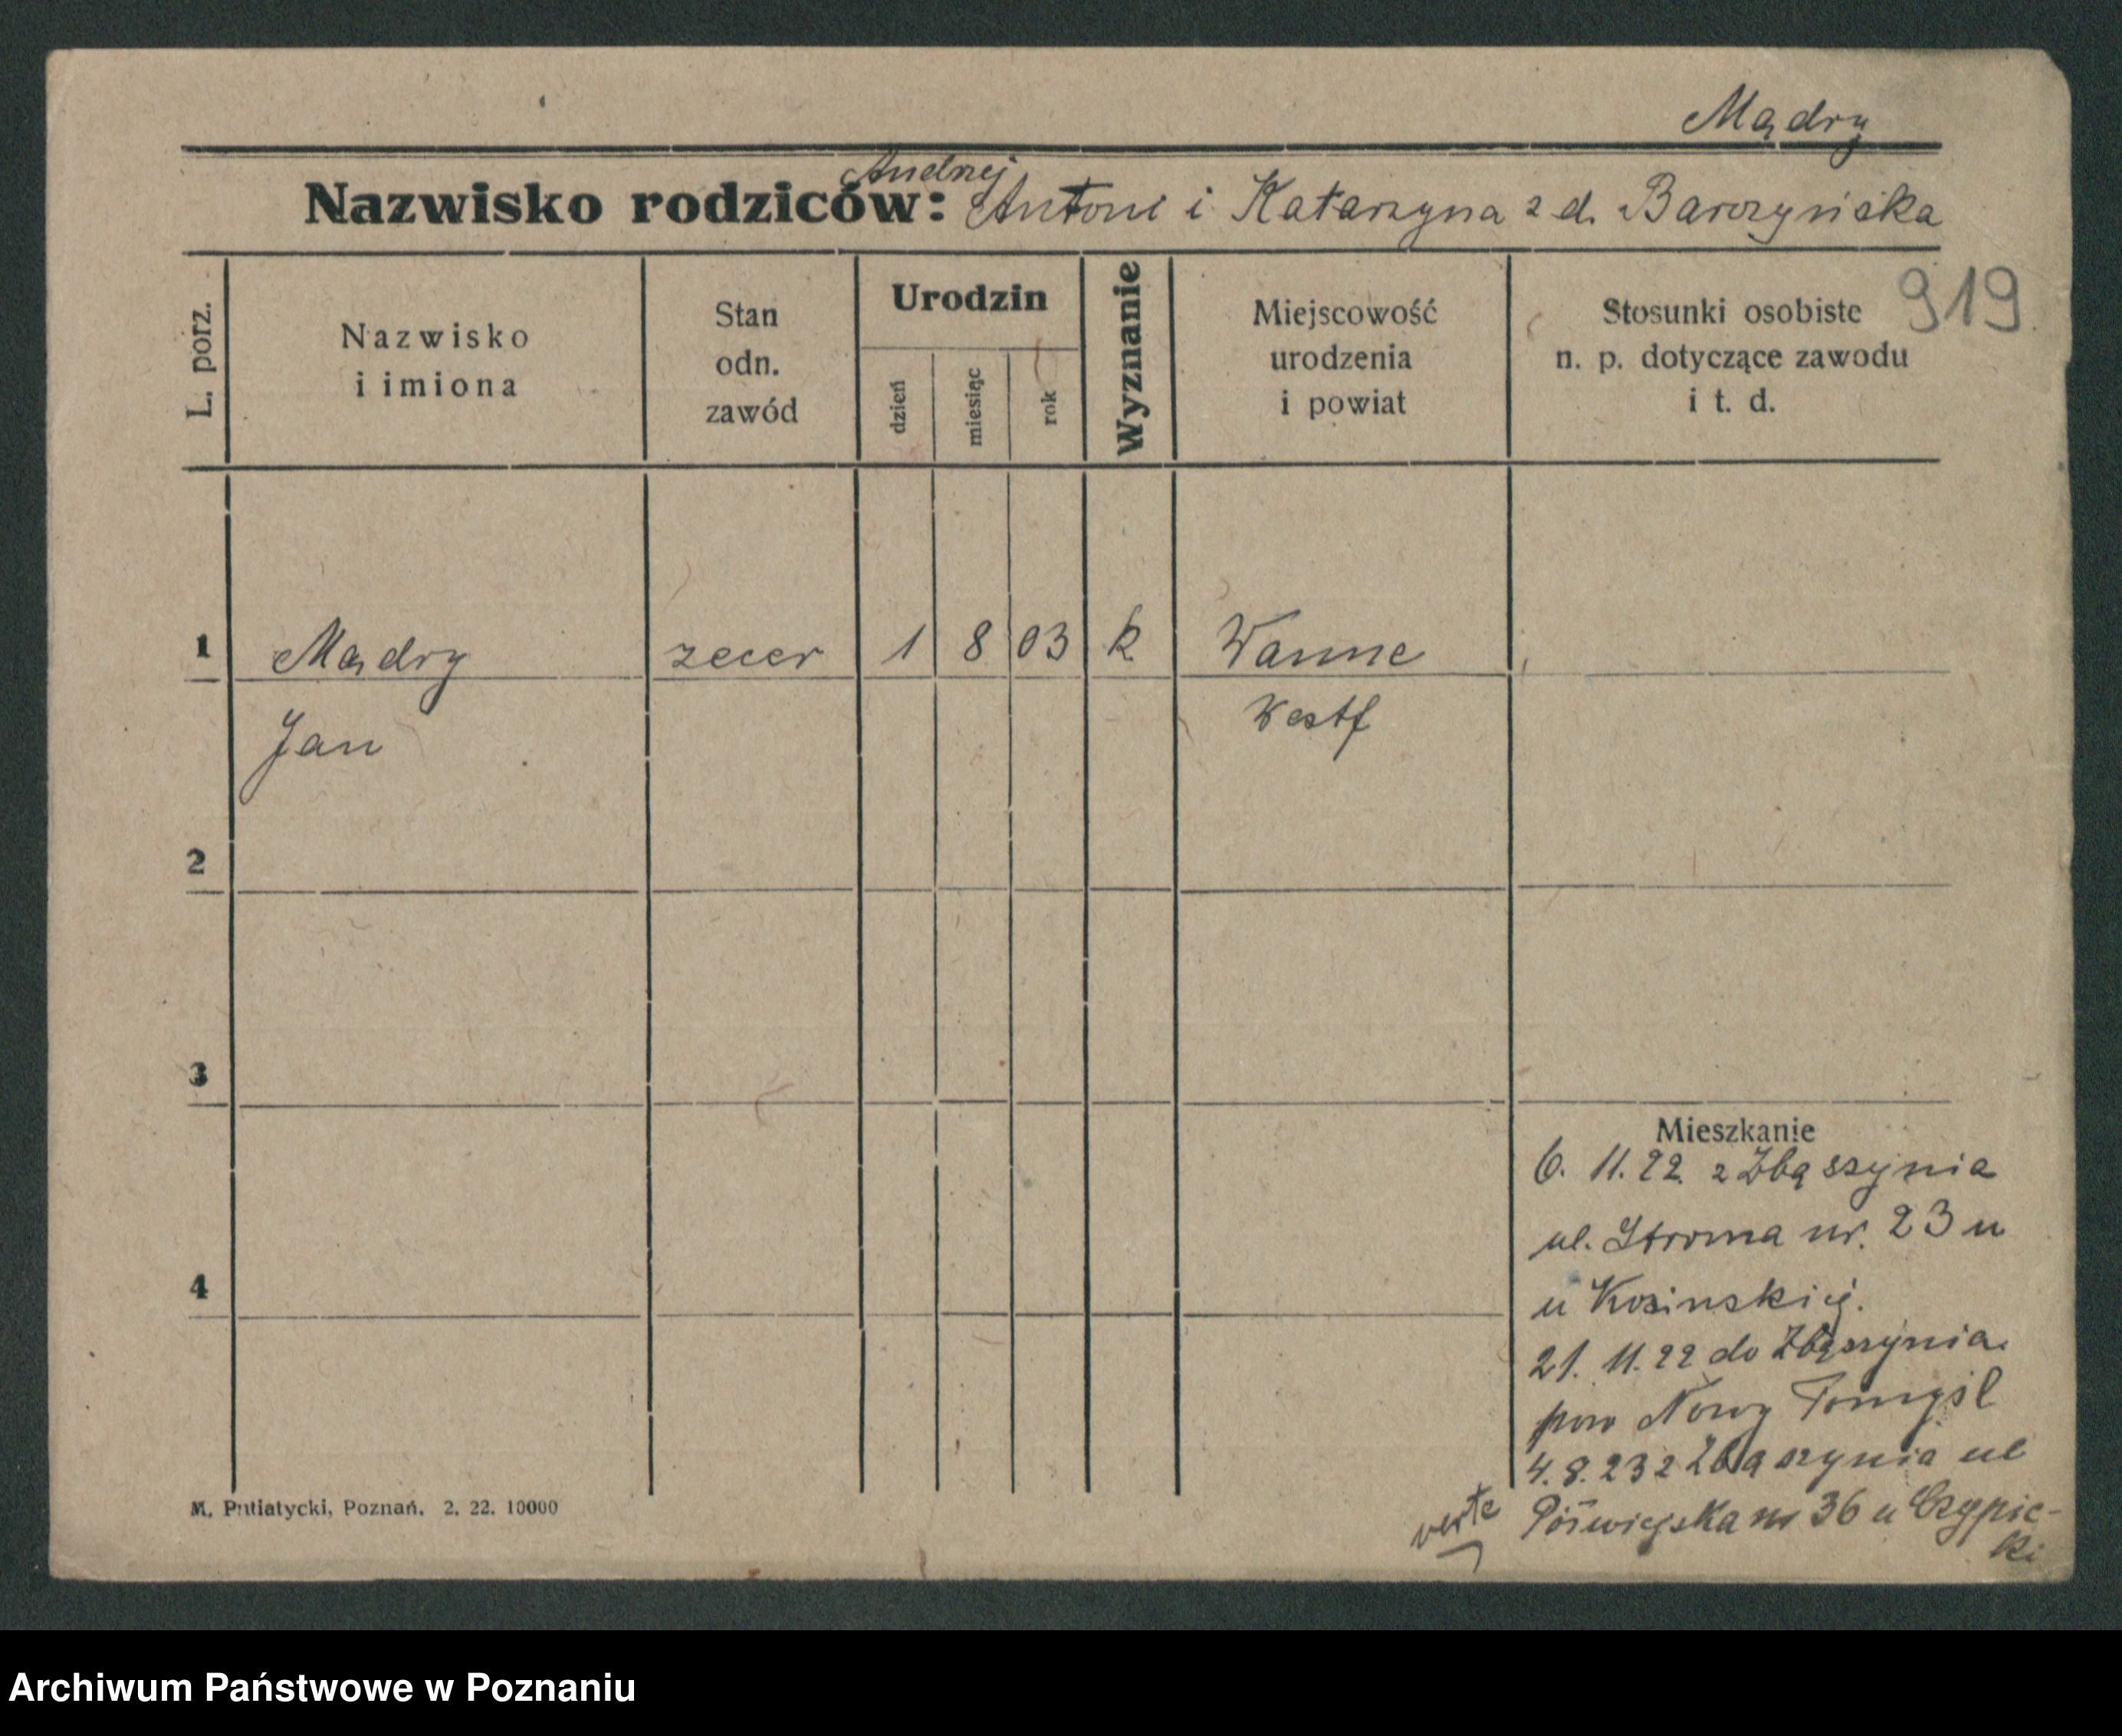 Mądry
Andrzej
Nazwisko rodziców: Antoni i Katarzyna z d. Barczyńska
919
L. porz.
Nazwisko
i imiona
Stan
odn.
zawód
Urodzin
dzień
miesiąc
rok
Wyznanie
Miejscowość
urodzenia
i powiat
Stosunki osobiste
n. p. dotyczące zawodu
i t. d.
1 Mądry zecer 1 8 03 k Wanne
Jan Westf
2
3
4
Mieszkanie
6. 11. 22. z Zbąszynia
ul. Stroma nr. 23 u
u Kosinskiej.
21. 11. 22 do Zbąszynia.
pow Nowy Tomyśl
4. 8. 23 z Zbąszynia ul
Półwiejska nr 36 u Czypic-
ki
verte
M. Putiatycki, Poznań. 2. 22. 10000
Archiwum Państwowe w Poznaniu